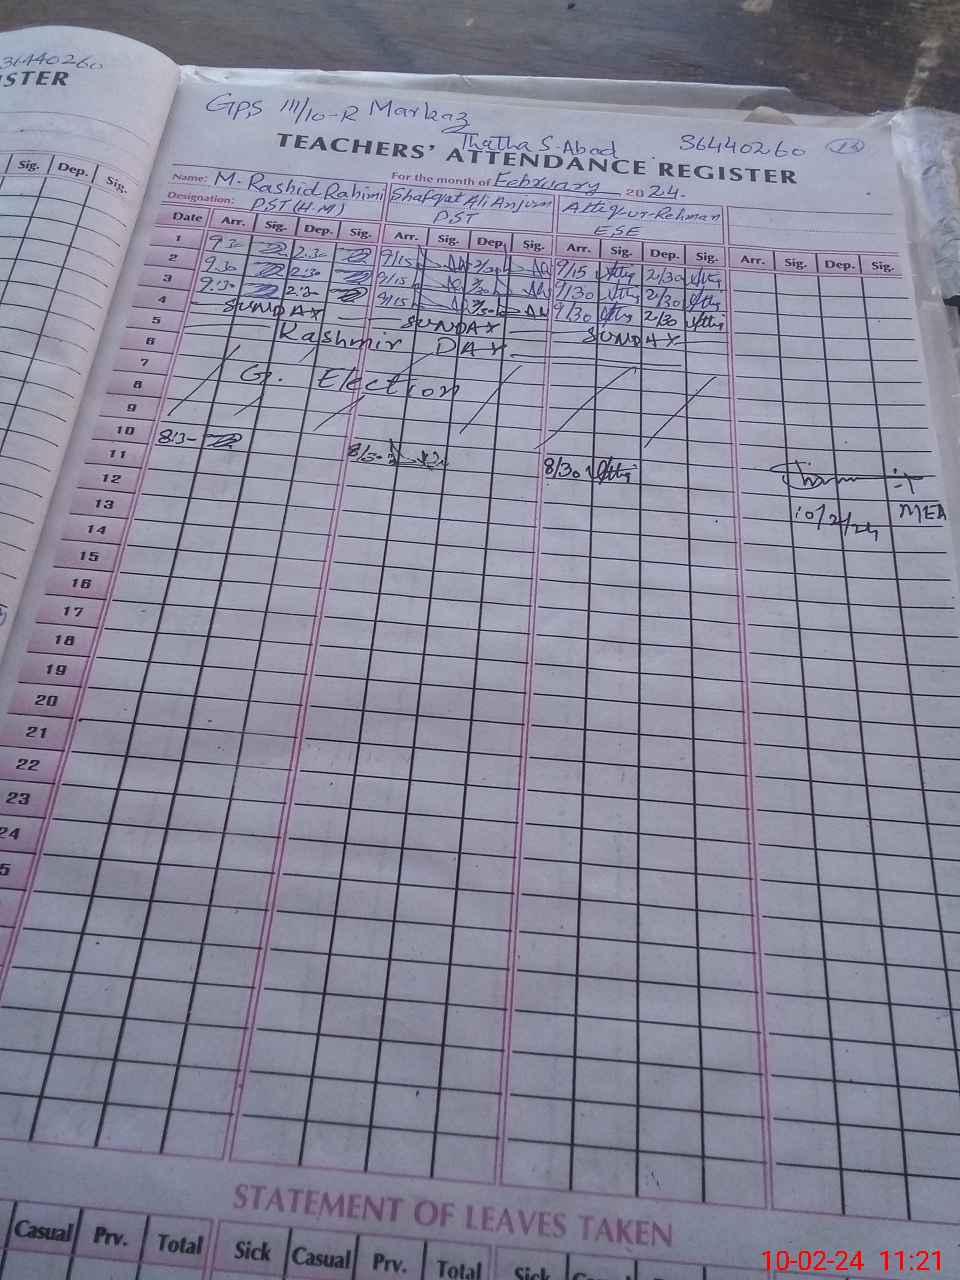 36440260
ISTER
Sig. Dep. Sig.
GPS 111/10-R Markaz
Thatha S. Abad 36440260 23
TEACHERS' ATTENDANCE REGISTER
Name: M. Rashid Rahimi For the month of February 2024.
Shafqat Ali Anjum Attiq-ur-Rehman
Designation: PST (H.M) PST ESE
Date Arr. Sig. Dep. Sig. Arr. Sig. Dep. Sig. Arr. Sig. Dep. Sig. Arr. Sig. Dep. Sig.
1 9.30 2.30 9/15 2/30 9/15 2/30
2 9.30 2.30 9/15 2/30 9/30 2/30
3 9.30 2.30 9/15 2/30 9/30 2/30
4 SUNDAY SUNDAY SUNDAY
5 Kashmir DAY
6
7 G. Election
8
9
10 8/3- 8/30 8/30
11
12
10/2/24 MEA
13
14
15
16
17
18
19
20
21
22
23
24
5
STATEMENT OF LEAVES TAKEN
Casual Prv. Total Sick Casual Prv. Total Sick
10-02-24 11:21